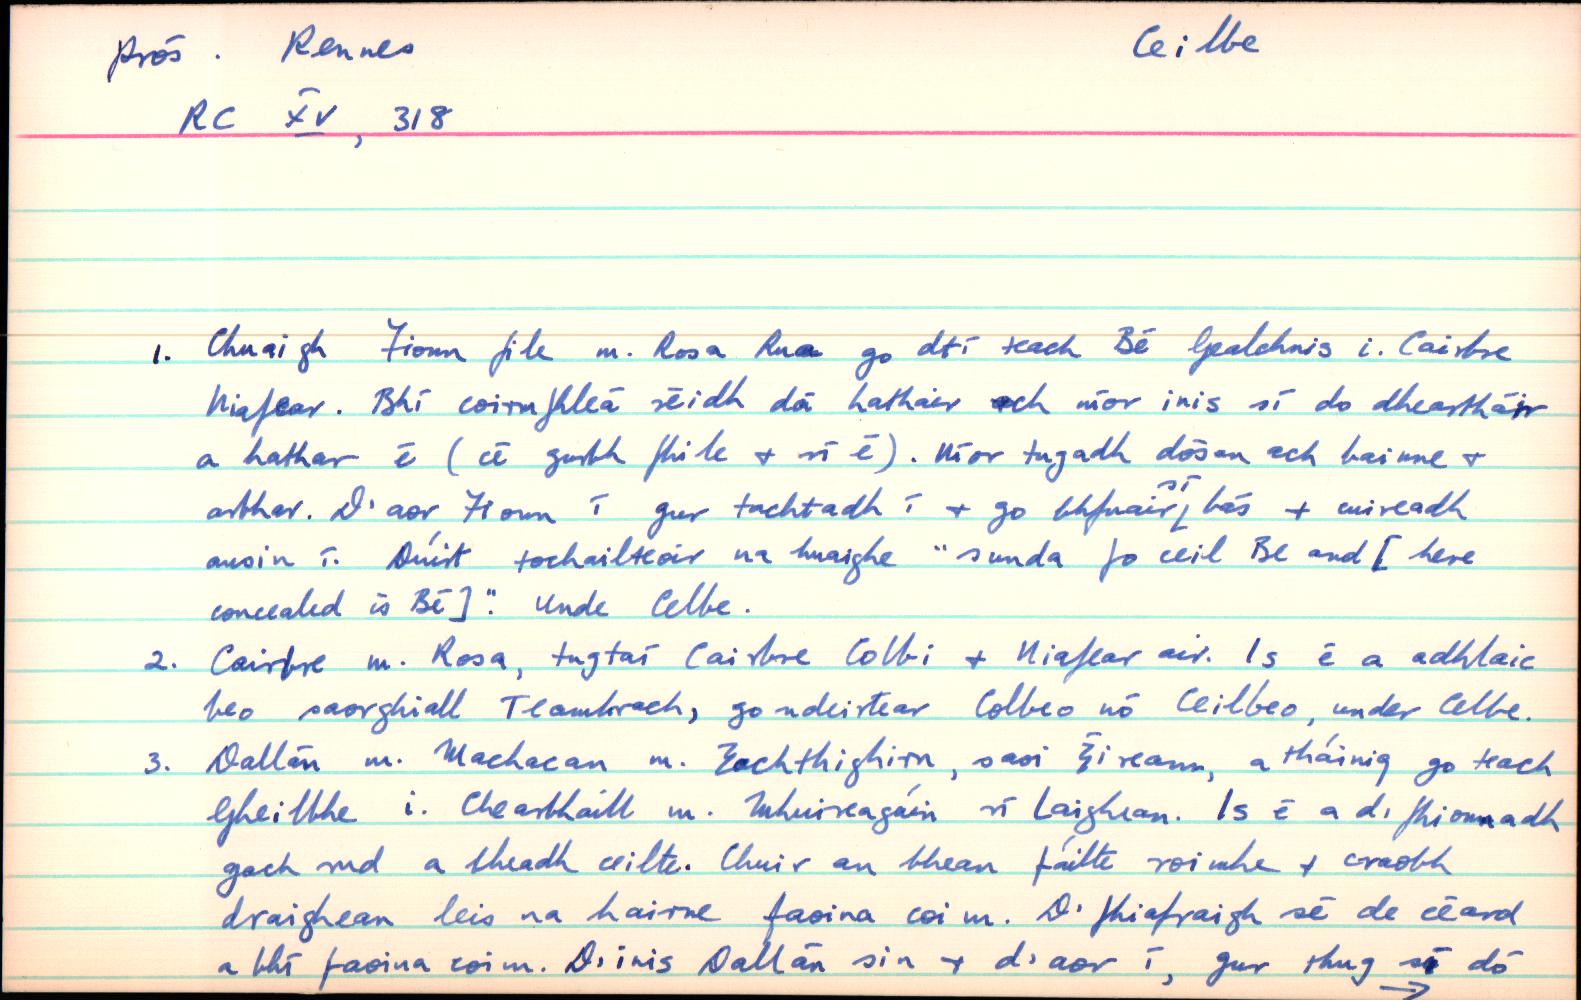 Prós. Rennes Ceilbe
RC XV, 318
1. Chuaigh Fionn file m. Rosa Rua go dtí teach Bé Gealchnis i. Cairbre
Niafear. Bhí coirmfhleá réidh dá hathair ach níor inis sí do dheartháir
a hathar é (cé gurbh fhile + rí é). Níor tugadh dósan ach bainne +
arbhar. D'aor Fionn í gur tachtadh í + go bhfuair sí bás + cuireadh
ansin í. Dúirt tochailteoir na huaighe "sunda fo ceil Be and [here
concealed is Bé]". Unde Celbe.
2. Cairbre m. Rosa, tugtaí Cairbre Colbi + Niafear air. Is é a adhlaic
beo saorghiall Teamhrach, go ndeirtear Colbeo nó Ceilbeo, under Celbe.
3. Dallán m. Machacan m. Eachthighirn, saoi Éireann, a tháinig go teach
Gheilbhe i. Chearbháill m. Mhuireagáin rí Laighean. Is é a d'fhionnadh
gach rud a bheadh ceilte. Chuir an bhean fáilte roimhe + craobh
draighean leis na hairne faoina coim. D'fhiafraigh sé de céard
a bhí faoina coim. D'inis Dallán sin + d'aor í, gur thug sí dó
→